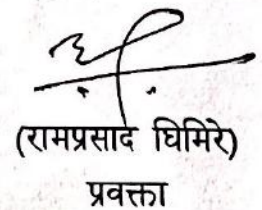 (रामप्रसाद घिमिरे)
प्रवक्ता